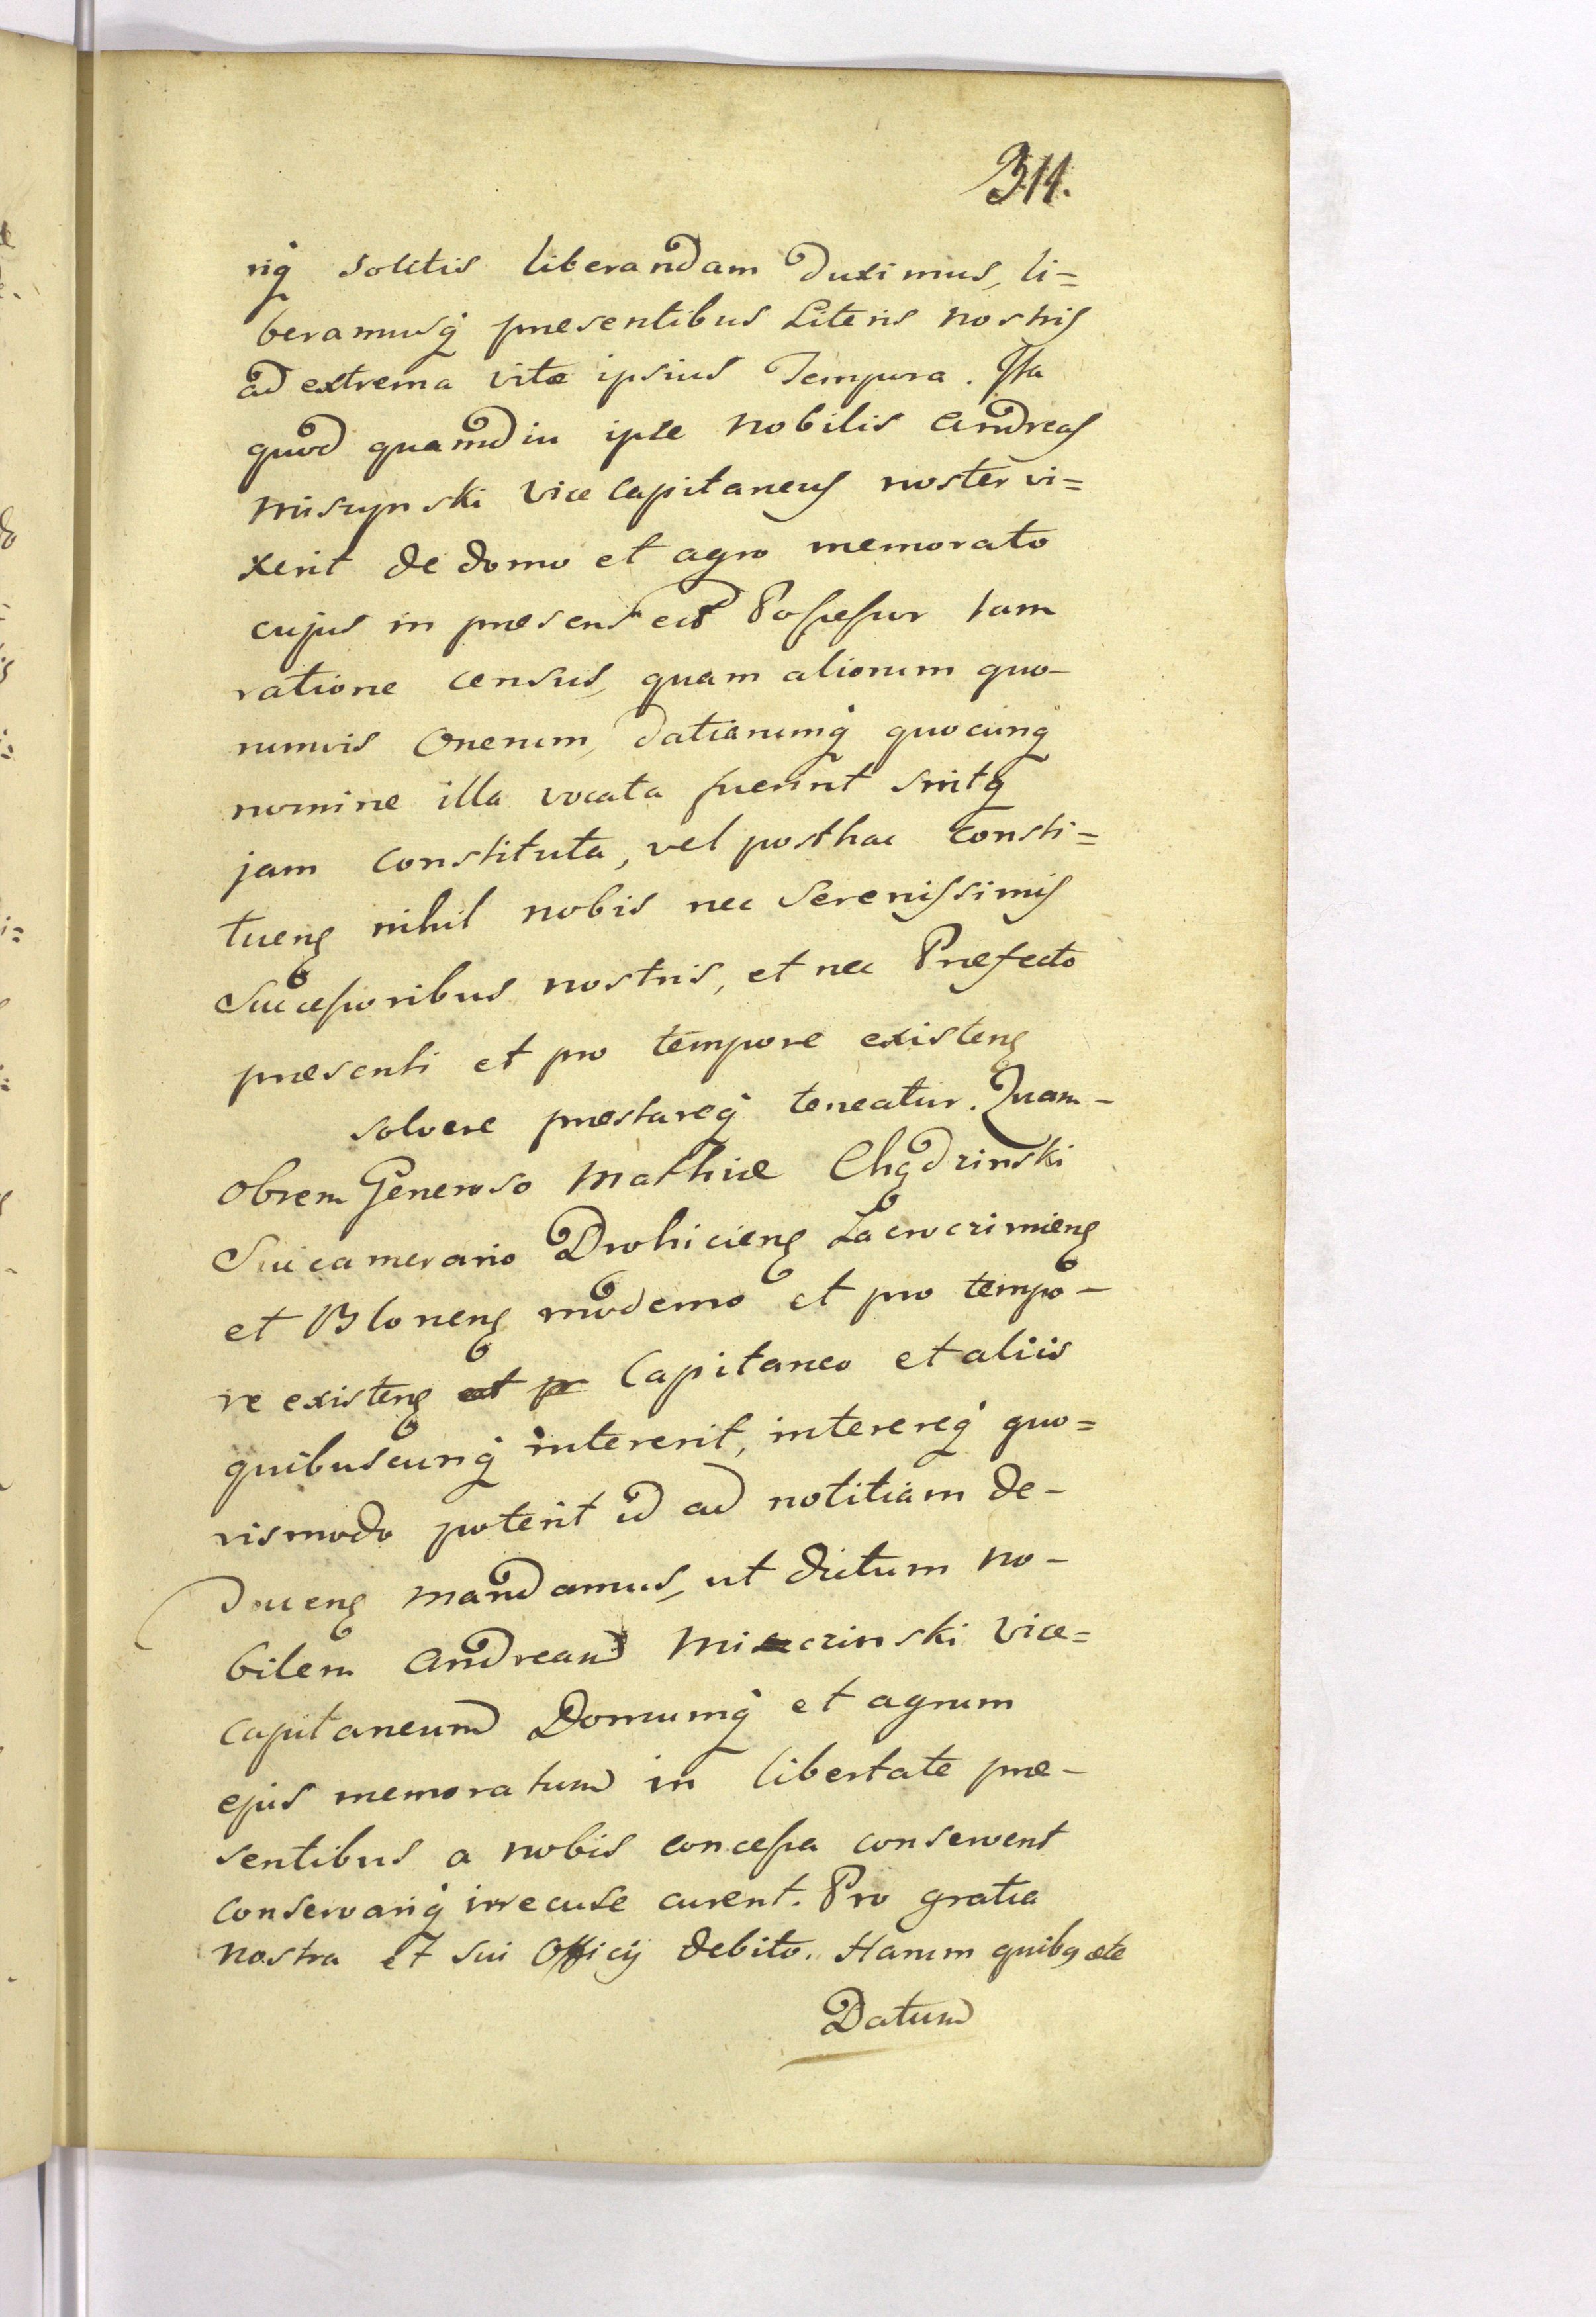 311.
riq solitis liberandam duximus, li=
beramusq presentibus Literis nostris
ad extrema vitæ ipsius Tempora. Ita
quod quamdiu ipse Nobilis Andreas
Miszynski Vice Capitaneus noster vi=
xerit de domo et agro memorato
cujus in præsens est Possessor tam
ratione census, quam aliorum quo-
rumvis Onerum, datiarumq quocunq
nomine illa vocata fuerint sintq
jam constituta, vel posthac consti=
tuenę nihil nobis nec Serenissimis
Successoribus nostris, et nec Præfecto
præsenti et pro tempore existenę
solvere præstareq teneatur. Quam-
obrem Generoso Mathiæ Chądzinski
Succamerario Drohicienę Lacroczimienę
et Blonenę moderno et pro tempo-
re existenę Capitaneo et aliis
quibuscunq intererit, interereq quo=
vismodo poterit id ad notitiam de-
ducenę mandamus, ut dictum No-
bilem Andream Miczinski Vice=
capitaneum Domumq et agrum
ejus memoratum in libertate præ-
sentibus a nobis concessa conservent
conservariq irrecuse curent. Pro gratia
nostra et sui Officij debito. Harum quibq etc
Datum